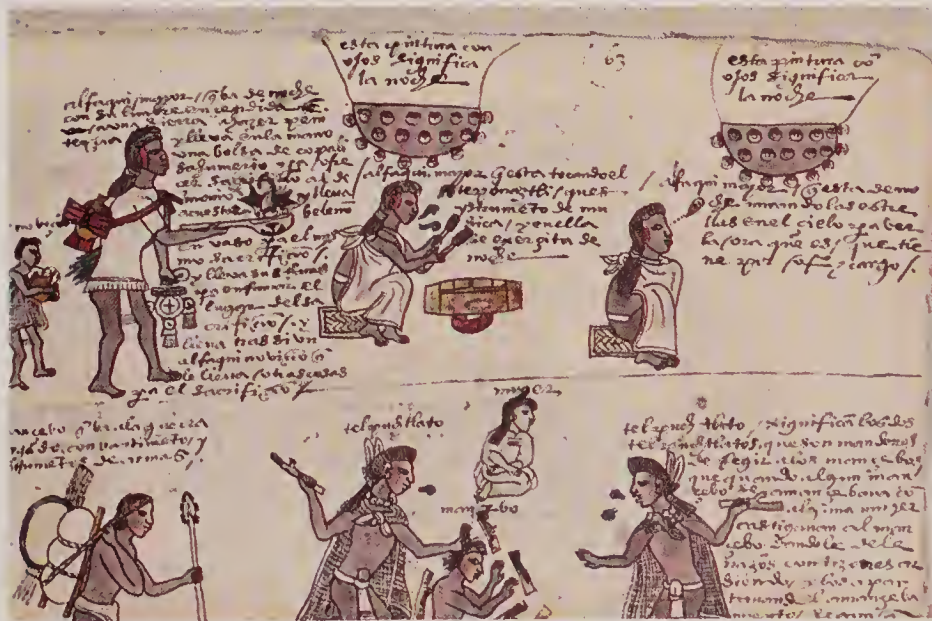 esta pintura con
ojos significa
la noche
63
esta pintura cō
ojos significa
la noche
alfaqui mayor / q̃ va de noche
con su lumbre encendida
a la sierra a hazer peni
tençia
y lleva en la mano
una bolsa de copali
sahumerio para ofre
cer sacrifiçio al de
monio y lleva
acuestas beleño
en vaso para el mis
mo sacrifiçio /
y lleva sus
para confirmar el
lugar del sa
crifiçio / y
lleva tras si un
alfaqui noviçio q̃
le lleva / otras cosas
pa el sacrifiçio /
alfaqui mayor q̃ esta tocando el
teponaztli / que es
ynstrumēto de mu
sica / y en ella
se exerçita de
noche
alfaqui mayor q̃ esta de no
che mirando las estre
llas en el cielo pa ver
la ora que es / que tie
ne por ofiçio y cargo /
ançebo q̃ va a la guerra
de con vastimētos / y
de armas /
telpuchtlato
muger
mançebo
telpuchtlato / significā los dos
telpuchtlatos, que son mandones
de regir a los mançebos
que quando algun man
çebo se amançebava cō
alguna muger
castigavan al man
çebo dandole de le
ñazos con tizones ar
diendo y los apar
tavan del amançeba